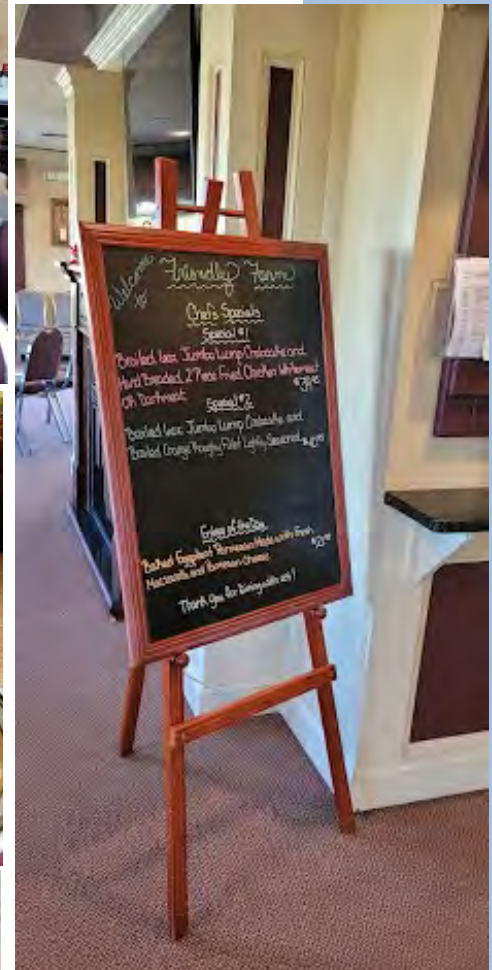 Welcome
to
Friendly Farm
Chef's Specials
Special #1
Broiled 6oz. Jumbo Lump Crabcake and
Hand Breaded, 2 Piece Fried Chicken
Or Darkmeat
Special #2
Broiled 6oz. Jumbo Lump Crabcake and
Broiled Orange Roughy Filet Lightly Seasoned
Entree of the Day
Baked Eggplant Parmesan Made with Fresh
Mozzarella and Parmesan Cheese
Thank you for Dining with us!